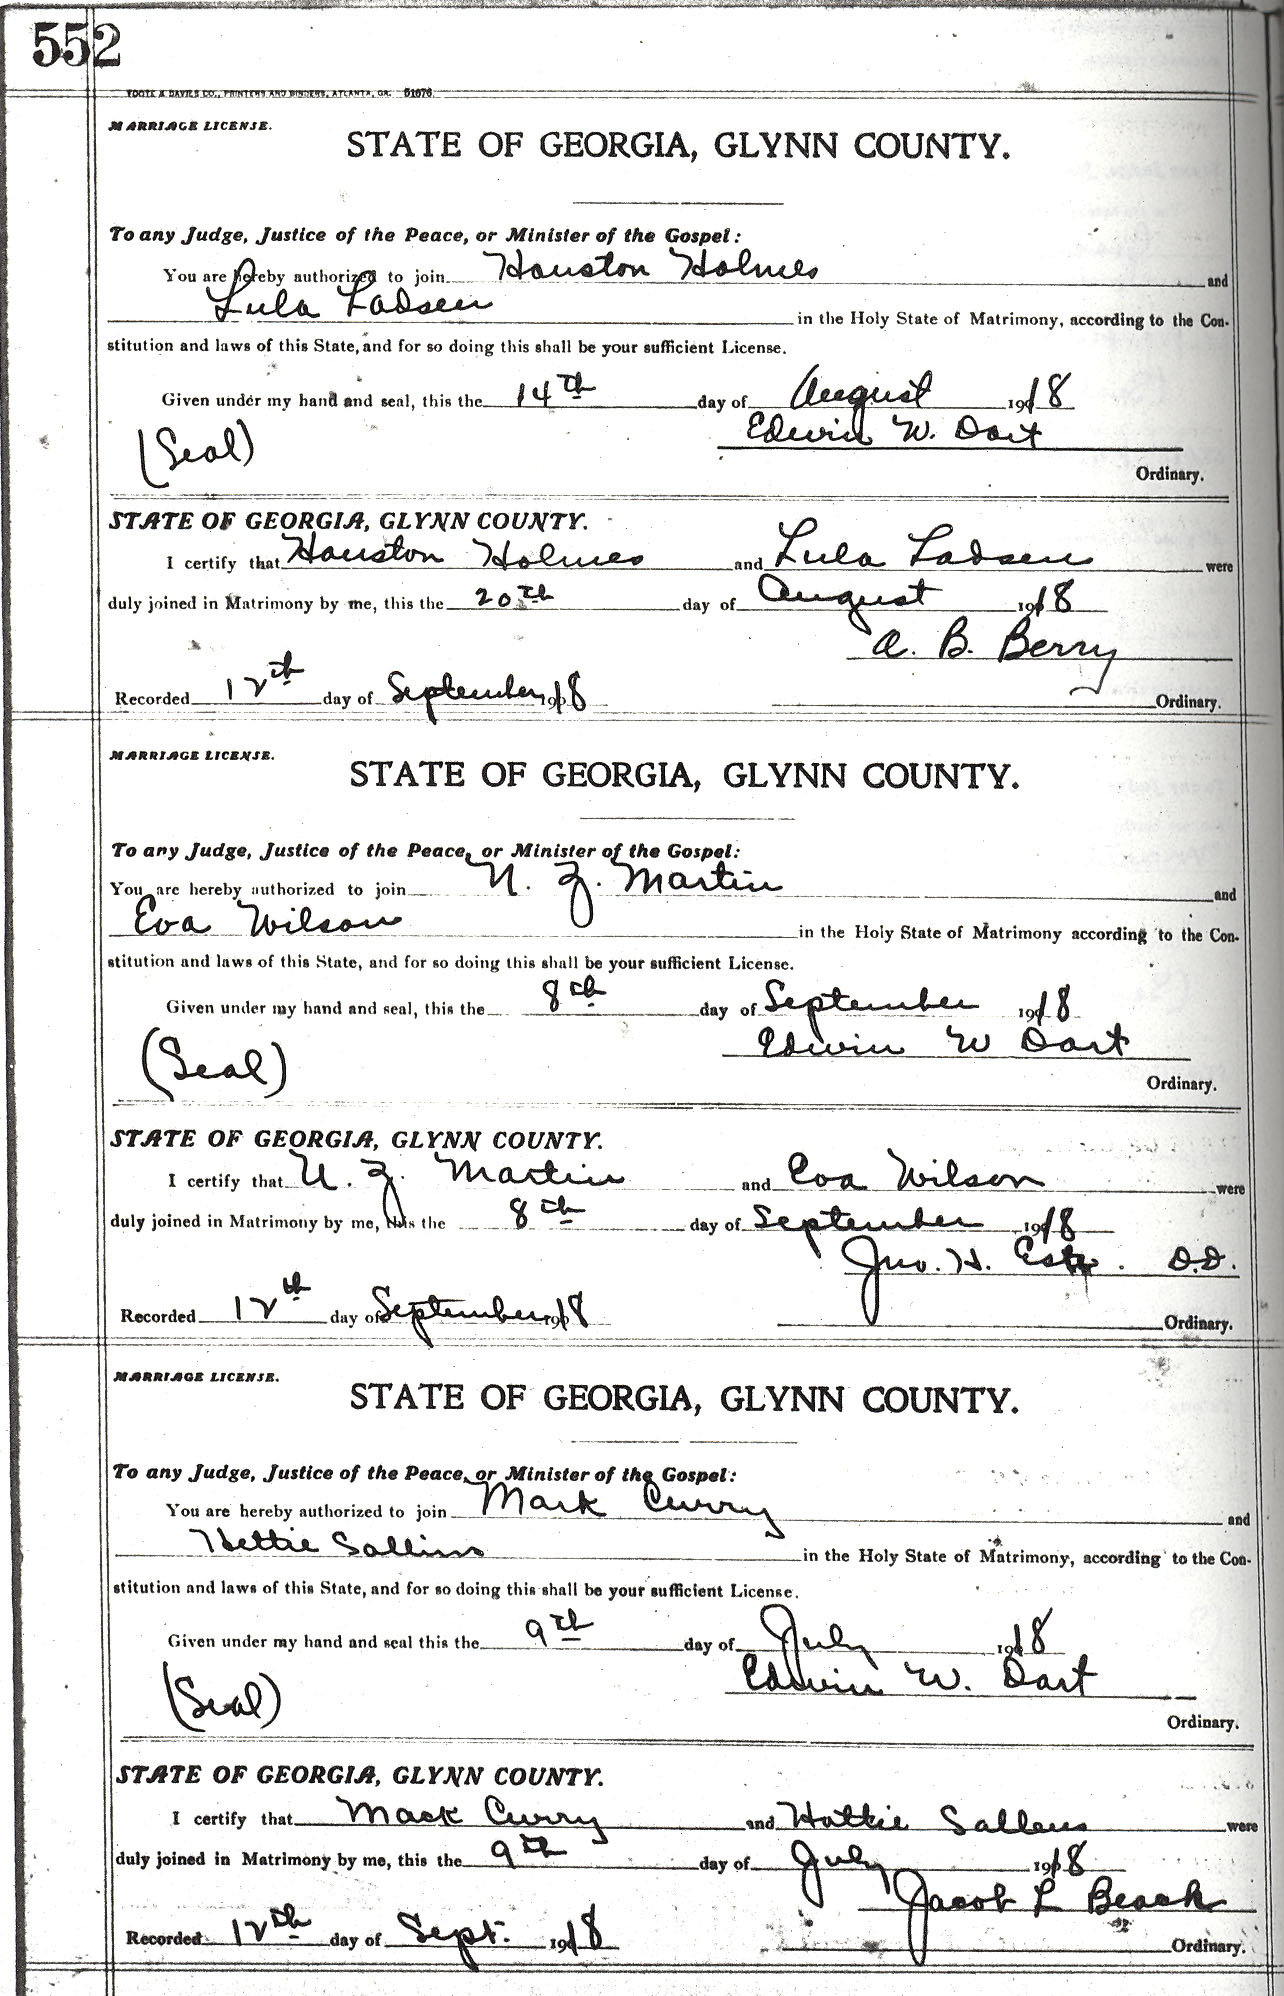 552
FOOTE & DAVIES CO., PRINTERS AND BINDERS, ATLANTA, GA. 51676
MARRIAGE LICENSE.
STATE OF GEORGIA, GLYNN COUNTY.
To any Judge, Justice of the Peace, or Minister of the Gospel:
You are hereby authorized to join Houston Holmes and
Lula Ladsen in the Holy State of Matrimony, according to the Con-
stitution and laws of this State, and for so doing this shall be your sufficient License.
Given under my hand and seal, this the 14th day of August 1918
(Seal) Edwin W. Dart
Ordinary.
STATE OF GEORGIA, GLYNN COUNTY.
I certify that Houston Holmes and Lula Ladsen were
duly joined in Matrimony by me, this the 20th day of August 1918
A. B. Berry
Recorded 12th day of September 1918 Ordinary.
MARRIAGE LICENSE.
STATE OF GEORGIA, GLYNN COUNTY.
To any Judge, Justice of the Peace, or Minister of the Gospel:
You are hereby authorized to join Z. Martin and
Eva Wilson in the Holy State of Matrimony according to the Con-
stitution and laws of this State, and for so doing this shall be your sufficient License.
Given under my hand and seal, this the 8th day of September 1918
(Seal) Edwin W Dart
Ordinary.
STATE OF GEORGIA, GLYNN COUNTY.
I certify that Z. Martin and Eva Wilson were
duly joined in Matrimony by me, this the 8th day of September 1918
Jno. H. D.D.
Recorded 12th day of September 1918 Ordinary.
MARRIAGE LICENSE.
STATE OF GEORGIA, GLYNN COUNTY.
To any Judge, Justice of the Peace, or Minister of the Gospel:
You are hereby authorized to join Mark Curry and
Hettie Sallins in the Holy State of Matrimony, according to the Con-
stitution and laws of this State, and for so doing this shall be your sufficient License.
Given under my hand and seal this the 9th day of July 1918
(Seal) Edwin W. Dart
Ordinary.
STATE OF GEORGIA, GLYNN COUNTY.
I certify that Mack Curry and Hattie Sallens were
duly joined in Matrimony by me, this the 9th day of July 1918
Jacob L Beach
Recorded 12th day of Sept. 1918 Ordinary.